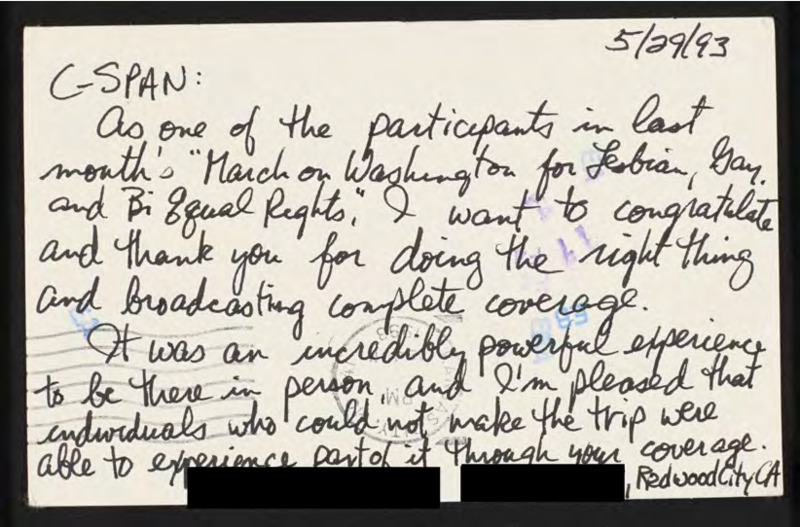 5/29/93
C-SPAN:
As one of the participants in last
month's "March on Washington for Lesbian, Gay,
and Bi Equal Rights," I want to congratulate
and thank you for doing the right thing
and broadcasting complete coverage.
It was an incredibly powerful experience
to be there in person, and I'm pleased that
individuals who could not make the trip were
able to experience part of it through your coverage.
, Redwood City CA
PM